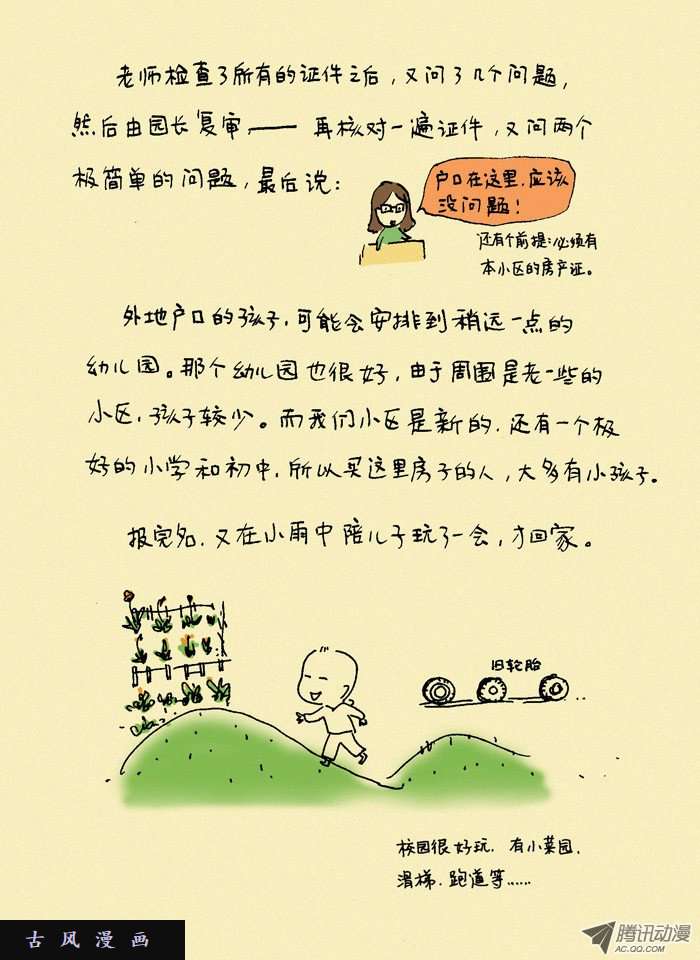 老师检查了所有的证件之后，又问了几个问题，
然后由园长复审——再核对一遍证件，又问两个
极简单的问题，最后说：
户口在这里，应该
没问题！
还有个前提：必须有
本小区的房产证。
外地户口的孩子，可能会安排到稍远一点的
幼儿园。那个幼儿园也很好，由于周围是老一些的
小区，孩子较少。而我们小区是新的，还有一个极
好的小学和初中，所以买这里房子的人，大多有小孩子。
报完名，又在小雨中陪儿子玩了一会，才回家。
旧轮胎
校园很好玩，有小菜园，
滑梯，跑道等……
古风漫画
腾讯动漫
AC.QQ.COM